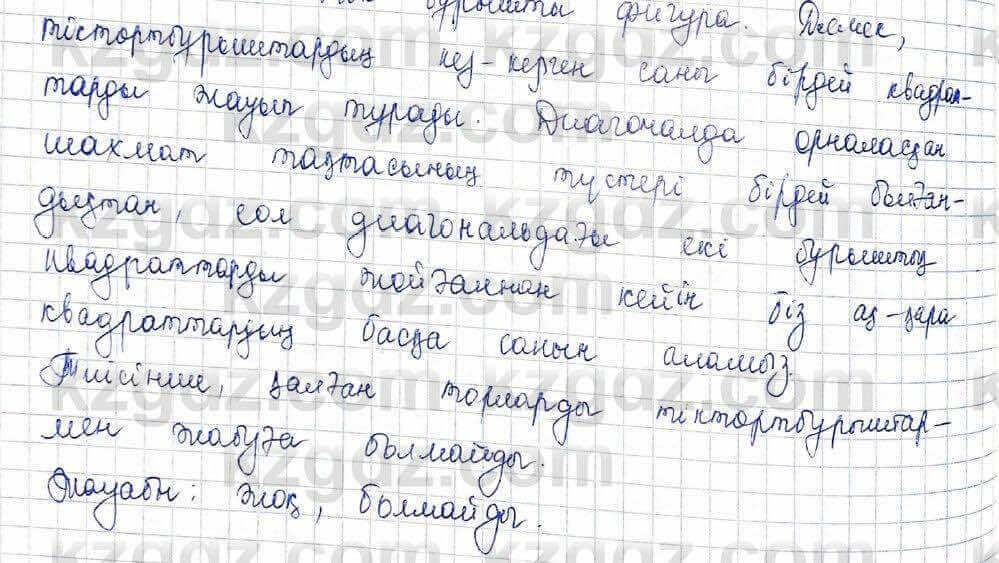 бұрышты фигура. Демек,
тіктөртбұрыштардың кез-келген саны бірдей квадрат-
тарды жауып тұрады. Диагоналда орналасқан
шахмат тақтасының түстері бірдей болған-
дықтан, сол диагональдағы екі бұрыштық
квадраттарды жойғаннан кейін біз ақ-қара
квадраттардың басқа санын аламыз.
Тиісінше, қалған торларды тіктөртбұрыштар-
мен жабуға болмайды.
Жауабы: жоқ, болмайды.
kzgdz.com